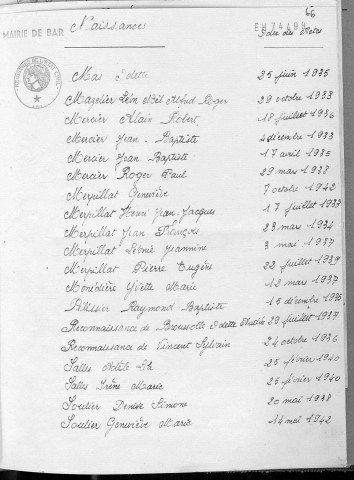 66
MAIRIE DE BAR
Naissances
EH74699
Date des Actes
Mas Odette 25 juin 1935
Mazelier Léon Noël Alfred Roger 29 octobre 1933
Mercier Alain Robert 18 juillet 1936
Mercier Jean-Baptiste 4 décembre 1933
Mercier Jean Baptiste 17 avril 1935
Mercier Roger Paul 29 mars 1938
Merpillat Geneviève 7 octobre 1942
Merpillat Henri Jean-Jacques 17 juillet
Merpillat Jean François 23 mars 1934
Merpillat Léonie Jeannine 3 mai 1937
Merpillat Pierre Eugène 22 juillet 1939
Monédière Yvette Marie 12 mars 1937
Pélissier Raymond Baptiste 15 décembre
Reconnaissance de Brousolle Odette 29 juillet 1937
Reconnaissance de Vincent Sylvain 24 octobre 1936
Salles 25 février 1940
Salles Irène Marie 25 février 1940
Soulier Denise Simone 20 mai 1938
Soulier Geneviève Marie 14 mai 1942